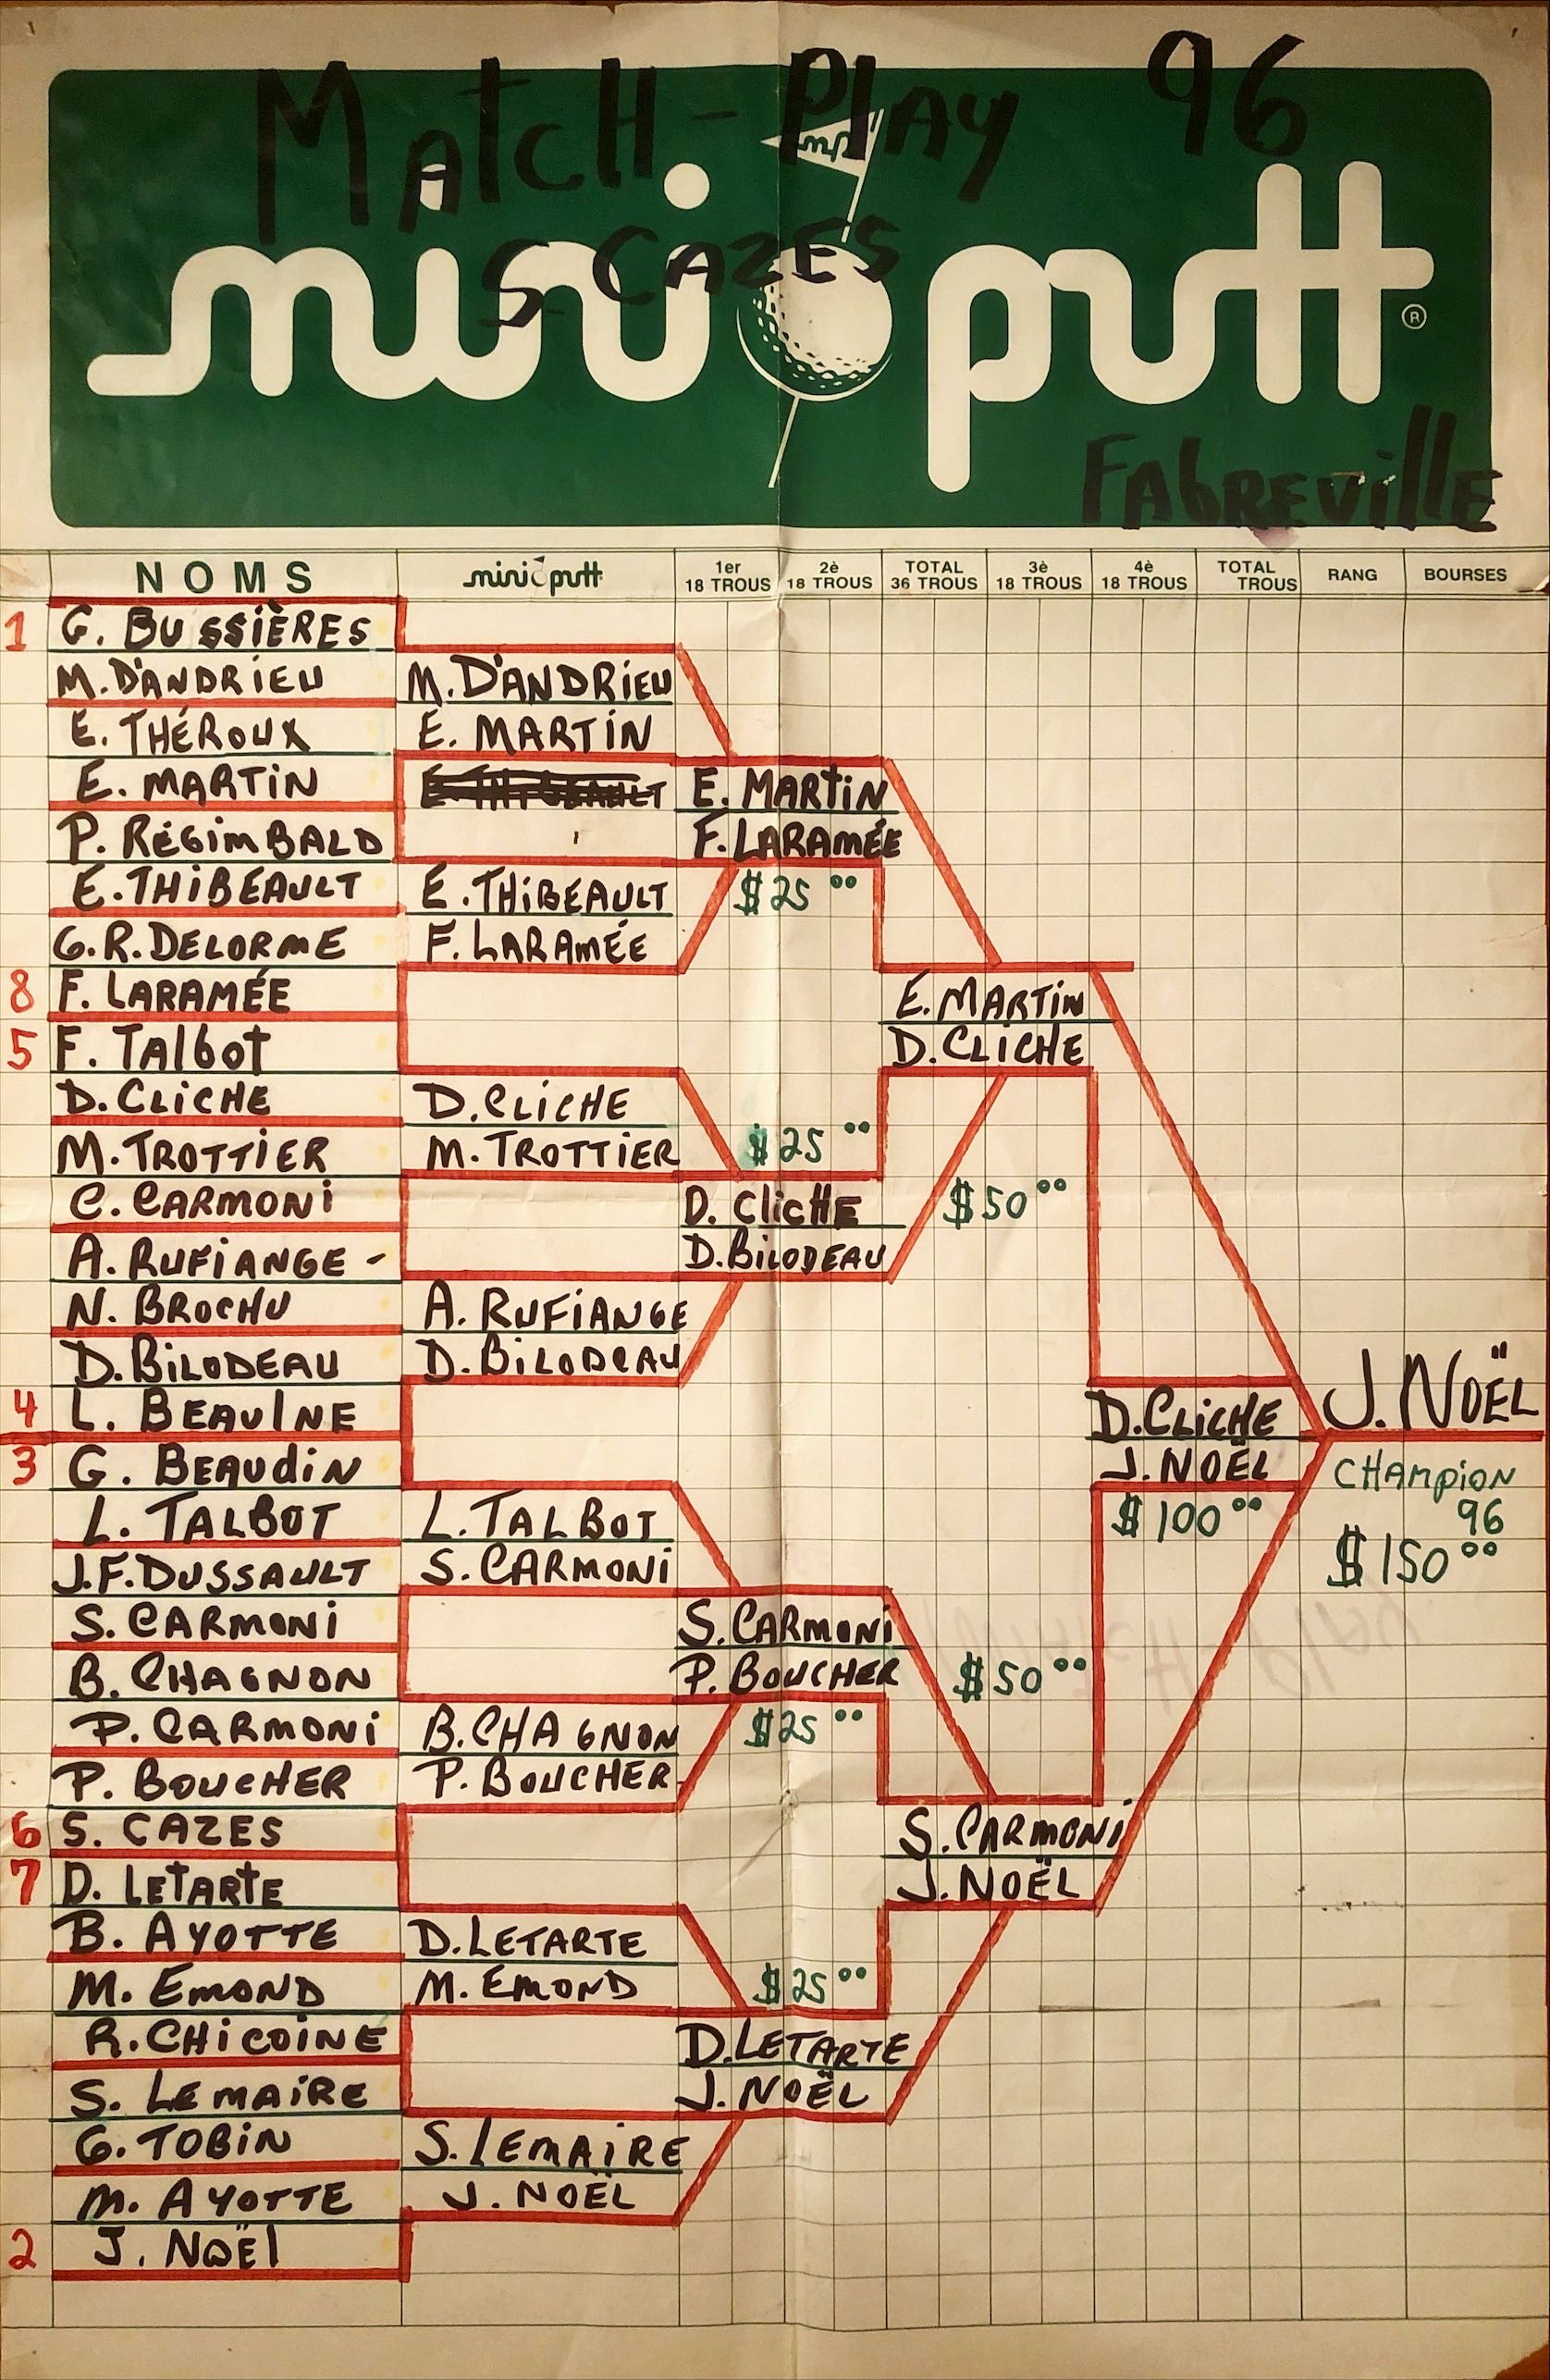 Match-Play 96
mp
S. CAZES
mini putt ®
Fabreville
NOMS mini putt 1er 18 TROUS 2è 18 TROUS TOTAL 36 TROUS 3è 18 TROUS 4è 18 TROUS TOTAL TROUS RANG BOURSES
1 G. BUSSIÈRES
M. D'ANDRIEU M. D'ANDRIEU
E. THÉROUX E. MARTIN
E. MARTIN E. MARTIN
P. RÉGIMBALD F. LARAMÉE
E. THIBEAULT E. THIBEAULT $25 00
G.R. DELORME F. LARAMÉE
8 F. LARAMÉE E. MARTIN
5 F. TALBOT D. CLICHE
D. CLICHE D. CLICHE
M. TROTTIER M. TROTTIER $25 00
C. CARMONI D. CLICHE $50 00
A. RUFIANGE - D. BILODEAU
N. BROCHU A. RUFIANGE
D. BILODEAU D. BILODEAU J. NOËL
4 L. BEAULNE D. CLICHE
3 G. BEAUDIN J. NOËL CHAMPION
L. TALBOT L. TALBOT $100 00 96
J.F. DUSSAULT S. CARMONI $150 00
S. CARMONI S. CARMONI
B. CHAGNON P. BOUCHER $50 00
P. CARMONI B. CHAGNON $25 00
P. BOUCHER P. BOUCHER
6 S. CAZES S. CARMONI
7 D. LETARTE J. NOËL
B. AYOTTE D. LETARTE
M. EMOND M. EMOND $25 00
R. CHICOINE D. LETARTE
S. LEMAIRE J. NOËL
G. TOBIN S. LEMAIRE
M. AYOTTE J. NOËL
2 J. NOËL